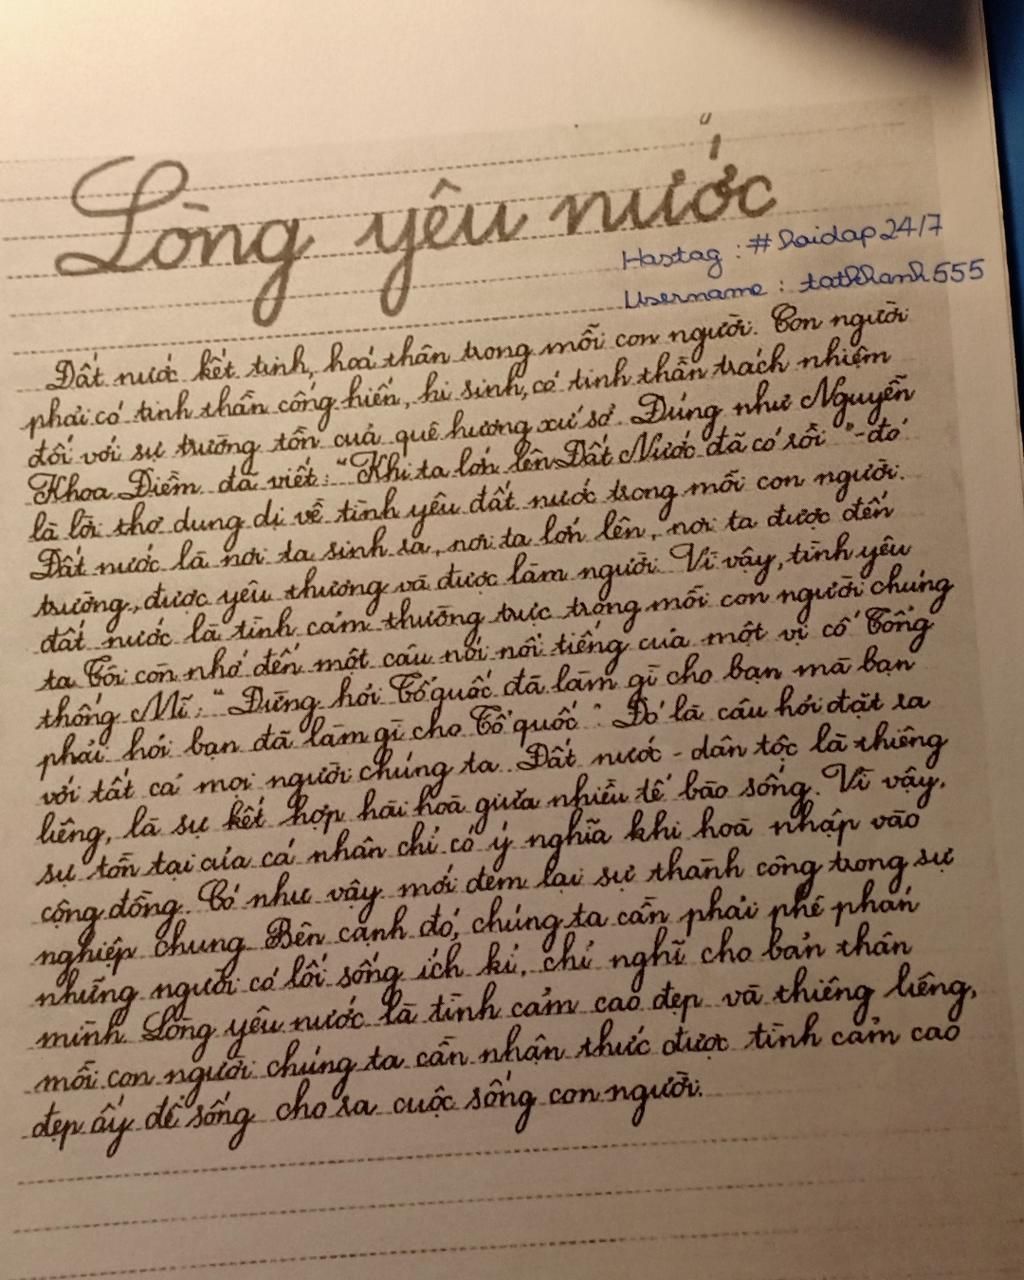 Lòng yêu nước
Hastag : #Daidap24/7
Username : tatkhanh555
Đất nước kết tinh, hoá thân trong mỗi con người. Con người
phải có tinh thần cống hiến, hi sinh, có tinh thần trách nhiệm
đối với sự trường tồn của quê hương xứ sở. Đúng như Nguyễn
Khoa Điềm đã viết: "Khi ta lớn lên Đất Nước đã có rồi" - đó
là lời thơ dung dị về tình yêu đất nước trong mỗi con người.
Đất nước là nơi ta sinh ra, nơi ta lớn lên, nơi ta được đến
trường, được yêu thương và được làm người. Vì vậy, tình yêu
đất nước là tình cảm thường trực trong mỗi con người chúng
ta. Tôi còn nhớ đến một câu nói nổi tiếng của một vị cố Tổng
thống Mĩ: "Đừng hỏi Tổ quốc đã làm gì cho bạn mà bạn
phải hỏi bạn đã làm gì cho Tổ quốc". Đó là câu hỏi đặt ra
với tất cả mọi người chúng ta. Đất nước - dân tộc là thiêng
liêng, là sự kết hợp hài hoà giữa nhiều tế bào sống. Vì vậy,
sự tồn tại của cá nhân chỉ có ý nghĩa khi hoà nhập vào
cộng đồng. Có như vậy mới đem lại sự thành công trong sự
nghiệp chung. Bên cạnh đó, chúng ta cần phải phê phán
những người có lối sống ích kỉ, chỉ nghĩ cho bản thân
mình. Lòng yêu nước là tình cảm cao đẹp và thiêng liêng,
mỗi con người chúng ta cần nhận thức được tình cảm cao
đẹp ấy để sống cho ra cuộc sống con người.